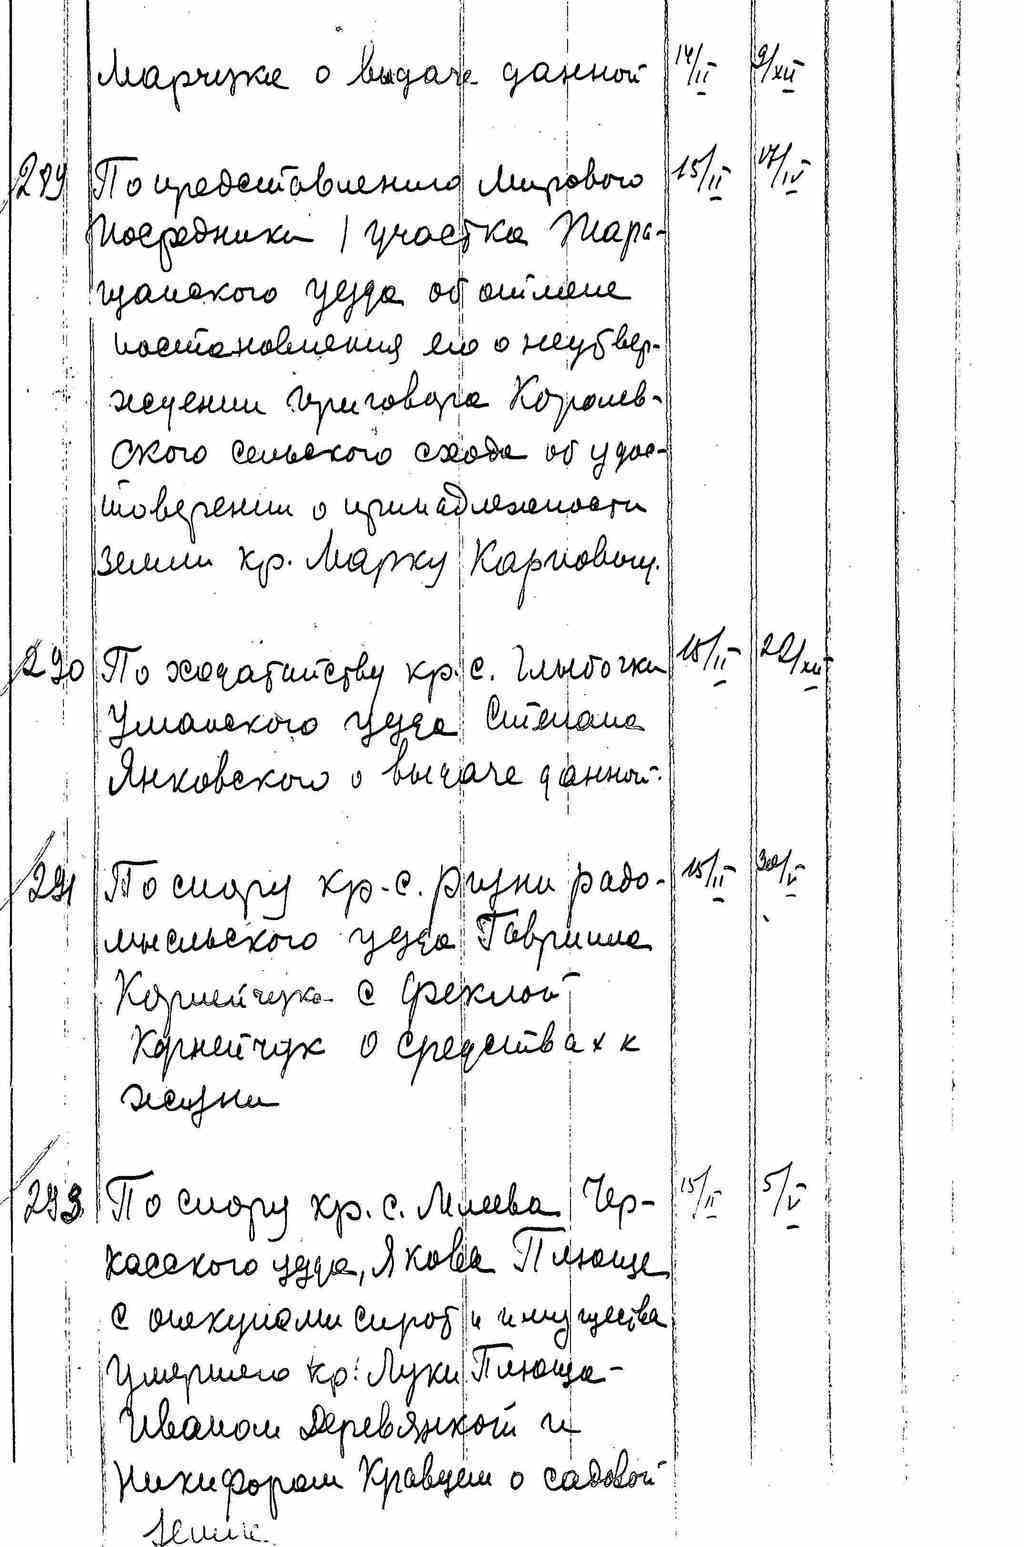 Марчука о выдаче данной 14/II 9/XII
289 По представлению Мирового 15/II 17/IV
Посредника 1 участка Тара-
щанского уезда об отмене
постановления его о неутвер-
ждении приговора Королев-
ского сельского схода об удос-
товерении о принадлежности
земли кр. Марку Карповичу.
290 По ходатайству кр. с. Глыбочки 15/II 22/XII
Уманского уезда Степана
Янковского о выдаче данной.
291 По спору кр. с. Ризни радо- 15/II 30/V
мысльского уезда Гавриила
Корнейчука с Феклой
Корнейчук о средствах к
жизни
293 По спору кр. с. Млеева Чер- 15/II 5/V
касского уезда, Якова Плюща
с опекунами сирот и имущества
умершего кр. Луки Плюща -
Иваном Деревянкой и
Никифором Кравцем о садовой
земле.